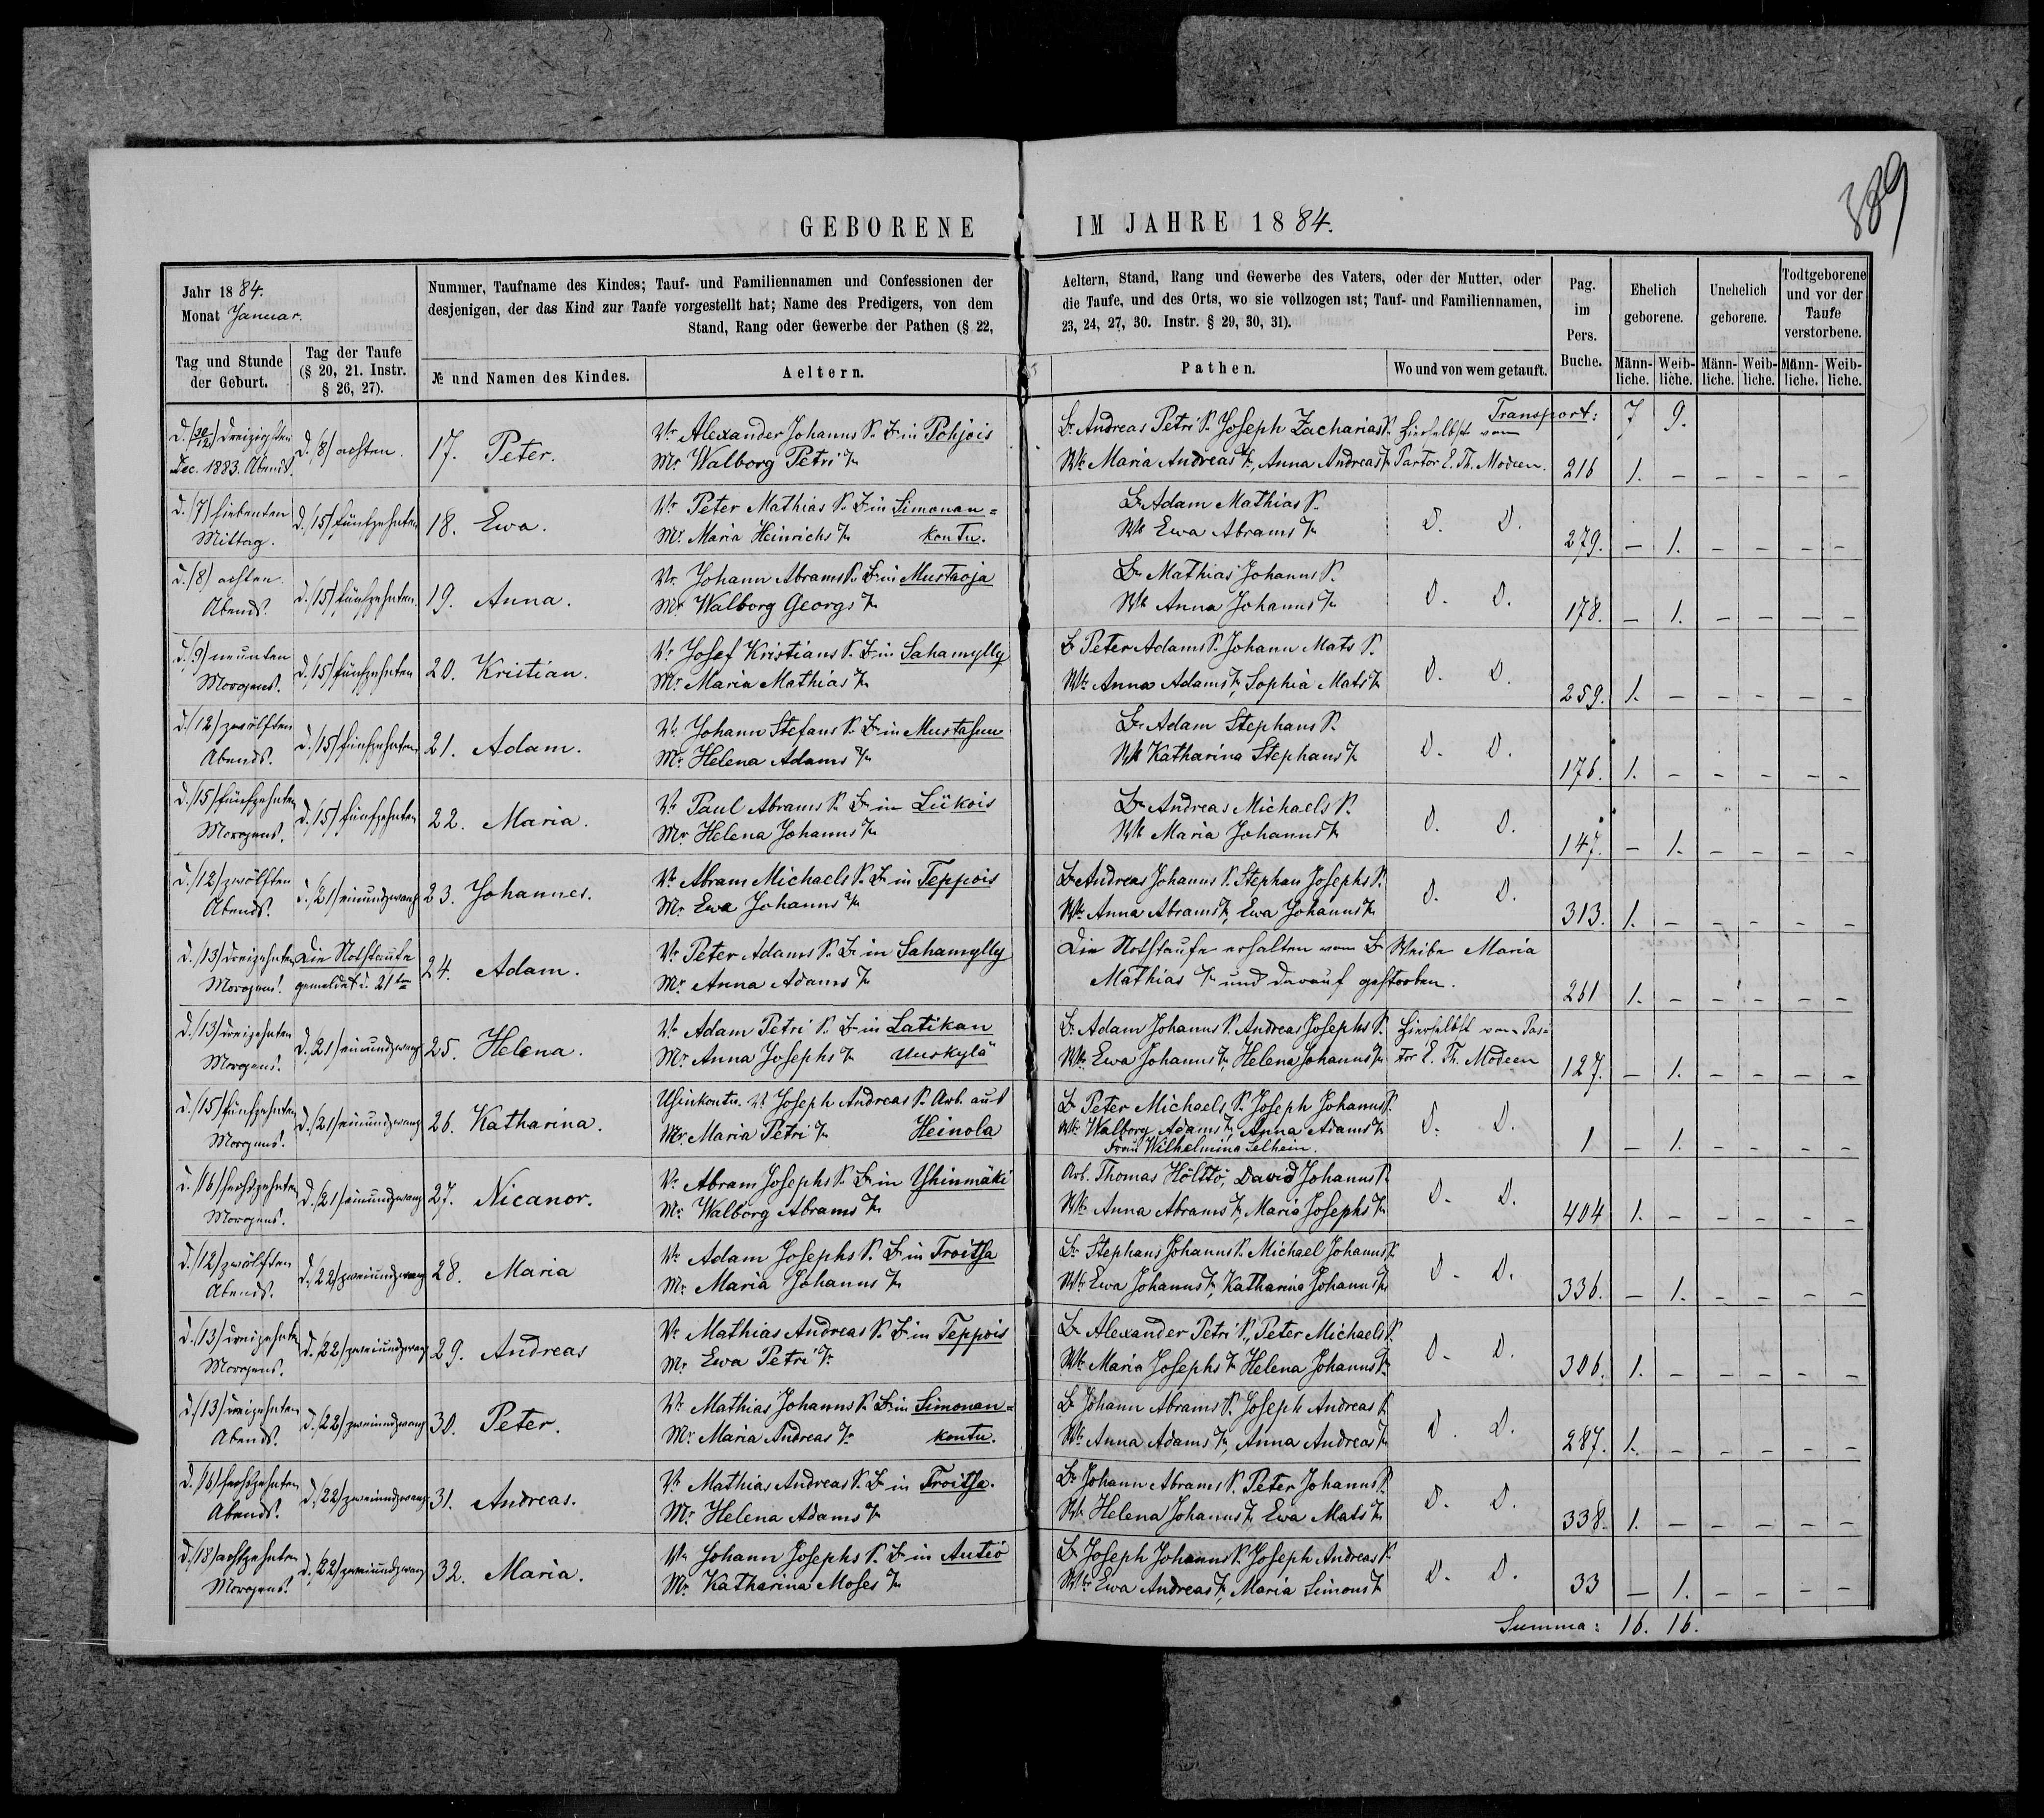 389
GEBORENE IM JAHRE 1884.
Jahr 1884.
Monat Januar.
Tag und Stunde der Geburt.
Tag der Taufe (§ 20, 21. Instr. § 26, 27).
Nummer, Taufname des Kindes; Tauf- und Familiennamen und Confessionen der
desjenigen, der das Kind zur Taufe vorgestellt hat; Name des Predigers, von dem
Stand, Rang oder Gewerbe der Pathen (§ 22,
№ und Namen des Kindes.
Aeltern.
Aeltern, Stand, Rang und Gewerbe des Vaters, oder der Mutter, oder
die Taufe, und des Orts, wo sie vollzogen ist; Tauf- und Familiennamen,
23, 24, 27, 30. Instr. § 29, 30, 31).
Pathen.
Wo und von wem getauft.
Pag. im Pers. Buche.
Ehelich geborene.
Unehelich geborene.
Todtgeborene und vor der Taufe verstorbene.
Männ-liche. Weib-liche. Männ-liche. Weib-liche. Männ-liche. Weib-liche.
Transport: 7 9.
d. (30/12) dreizigsten d. (8) achten. 17. Peter. Vr Alexander Johanns S. Br in Pohjois Br Andreas Petri S. Joseph Zacharias S. Hierselbst vom
Dec. 1883. Abends. Mr Walborg Petri Tr Wbr Maria Andreas Tr, Anna Andreas Tr Pastor E. Th. Modeen. 216 1. – – – – –
d. (7) siebenten d. (15) fünfzehnten 18. Ewa. Vr Peter Mathias S. Br in Simonan= Br Adam Mathias S. D. D.
Mittag. Mr Maria Heinrichs Tr kontu. Wb Ewa Abrams Tr 279. – 1. – – – –
d. (8) achten d. (15) fünfzehnten 19. Anna. Vr Johann Abrams S. Br in Mustaoja Br Mathias Johanns S. D. D.
Abends. Mr Walborg Georgs Tr Wb Anna Johanns Tr 178. – 1. – – – –
d. (9) neunten d. (15) fünfzehnten 20. Kristian. Vr Josef Kristians S. Br in Sahamylly Br Peter Adams S. Johann Mats S. D. D.
Morgens. Mr Maria Mathias Tr Wbr Anna Adams Tr, Sophia Mats Tr 259. 1. – – – – –
d. (12) zwölften d. (15) fünfzehnten 21. Adam. Vr Johann Stefans S. Br in Mustasuu Br Adam Stephans S. D. D.
Abends. Mr Helena Adams Tr Wb Katharina Stephans Tr 176. 1. – – – – –
d. (15) fünfzehnten d. (15) fünfzehnten 22. Maria. Vr Paul Abrams S. Br in Liikois Br Andreas Michaels S. D. D.
Morgens. Mr Helena Johanns Tr Wb Maria Johanns Tr 147. – 1. – – – –
d. (12) zwölften d. (21) einundzwanz 23. Johannes. Vr Abram Michaels S. Br in Teppois Br Andreas Johanns S. Stephan Josephs S. D. D.
Abends. Mr Ewa Johanns Tr Wbr Anna Abrams Tr, Ewa Johanns Tr 313. 1. – – – – –
d. (13) dreizehnten Die Nothtaufe 24. Adam. Vr Peter Adams S. Br in Sahamylly Die Nothtaufe erhalten vom Br Weibe Maria
Morgens. gemeldet d. 21ten Mr Anna Adams Tr Mathias Tr und darauf gestorben. 261 1. – – – – –
d. (13) dreizehnten d. (21) einundzwanz 25. Helena. Vr Adam Petri S. Br in Latikan Br Adam Johanns S. Andreas Josephs S. Hierselbst vom Pas=
Morgens. Mr Anna Josephs Tr Uuskylä Wbr Ewa Johanns Tr, Helena Johanns Tr tor E. Th. Modeen 127. – 1. – – – –
d. (15) fünfzehnten d. (21) einundzwanz 26. Katharina. Vr Joseph Andreas S. Arb. aus Br Peter Michaels S. Joseph Johanns S. D. D.
Morgens. Mr Maria Petri Tr Heinola Wbr Walborg Adams Tr, Anna Adams Tr 1 – 1. – – – –
Frau Wilhelmina Selhein.
d. (16) sechszehnten d. (21) einundzwanz 27. Nicanor. Vr Abram Josephs S. Br in Yhinmäki Arb. Thomas Hölttö, David Johanns S. D. D.
Morgens. Mr Walborg Abrams Tr Wbr Anna Abrams Tr, Maria Josephs Tr 404 1. – – – – –
d. (12) zwölften d. (22) zweiundzwanz 28. Maria Vr Adam Josephs S. Br in Troitsa Br Stephans Johanns S. Michael Johanns S. D. D.
Abends. Mr Maria Johanns Tr Wbr Ewa Johanns Tr, Katharina Johanns Tr 336. – 1. – – – –
d. (13) dreizehnten d. (22) zweiundzwanz 29. Andreas Vr Mathias Andreas S. Br in Teppois Br Alexander Petri S., Peter Michaels S. D. D.
Morgens. Mr Ewa Petri Tr Wbr Maria Josephs Tr Helena Johanns Tr 306. 1. – – – – –
d. (13) dreizehnten d. (22) zweiundzwanz 30. Peter. Vr Mathias Johanns S. Br in Simonan= Br Johann Abrams S. Joseph Andreas S. D. D.
Abends. Mr Maria Andreas Tr kontu. Wbr Anna Adams Tr, Anna Andreas Tr 287. 1. – – – – –
d. (16) sechszehnten d. (22) zweiundzwanz 31. Andreas. Vr Mathias Andreas S. Br in Troitsa. Br Johann Abrams S. Peter Johanns S. D. D.
Abends. Mr Helena Adams Tr Wbr Helena Johanns Tr Ewa Mats Tr 338. 1. – – – – –
d. (18) achtzehnten d. (22) zweiundzwanz 32. Maria. Vr Johann Josephs S. Br in Autiö Br Joseph Johanns S. Joseph Andreas S. D. D.
Morgens. Mr Katharina Moses Tr Wbr Ewa Andreas Tr, Maria Simons Tr 33 – 1. – – – –
Summa: 16. 16.